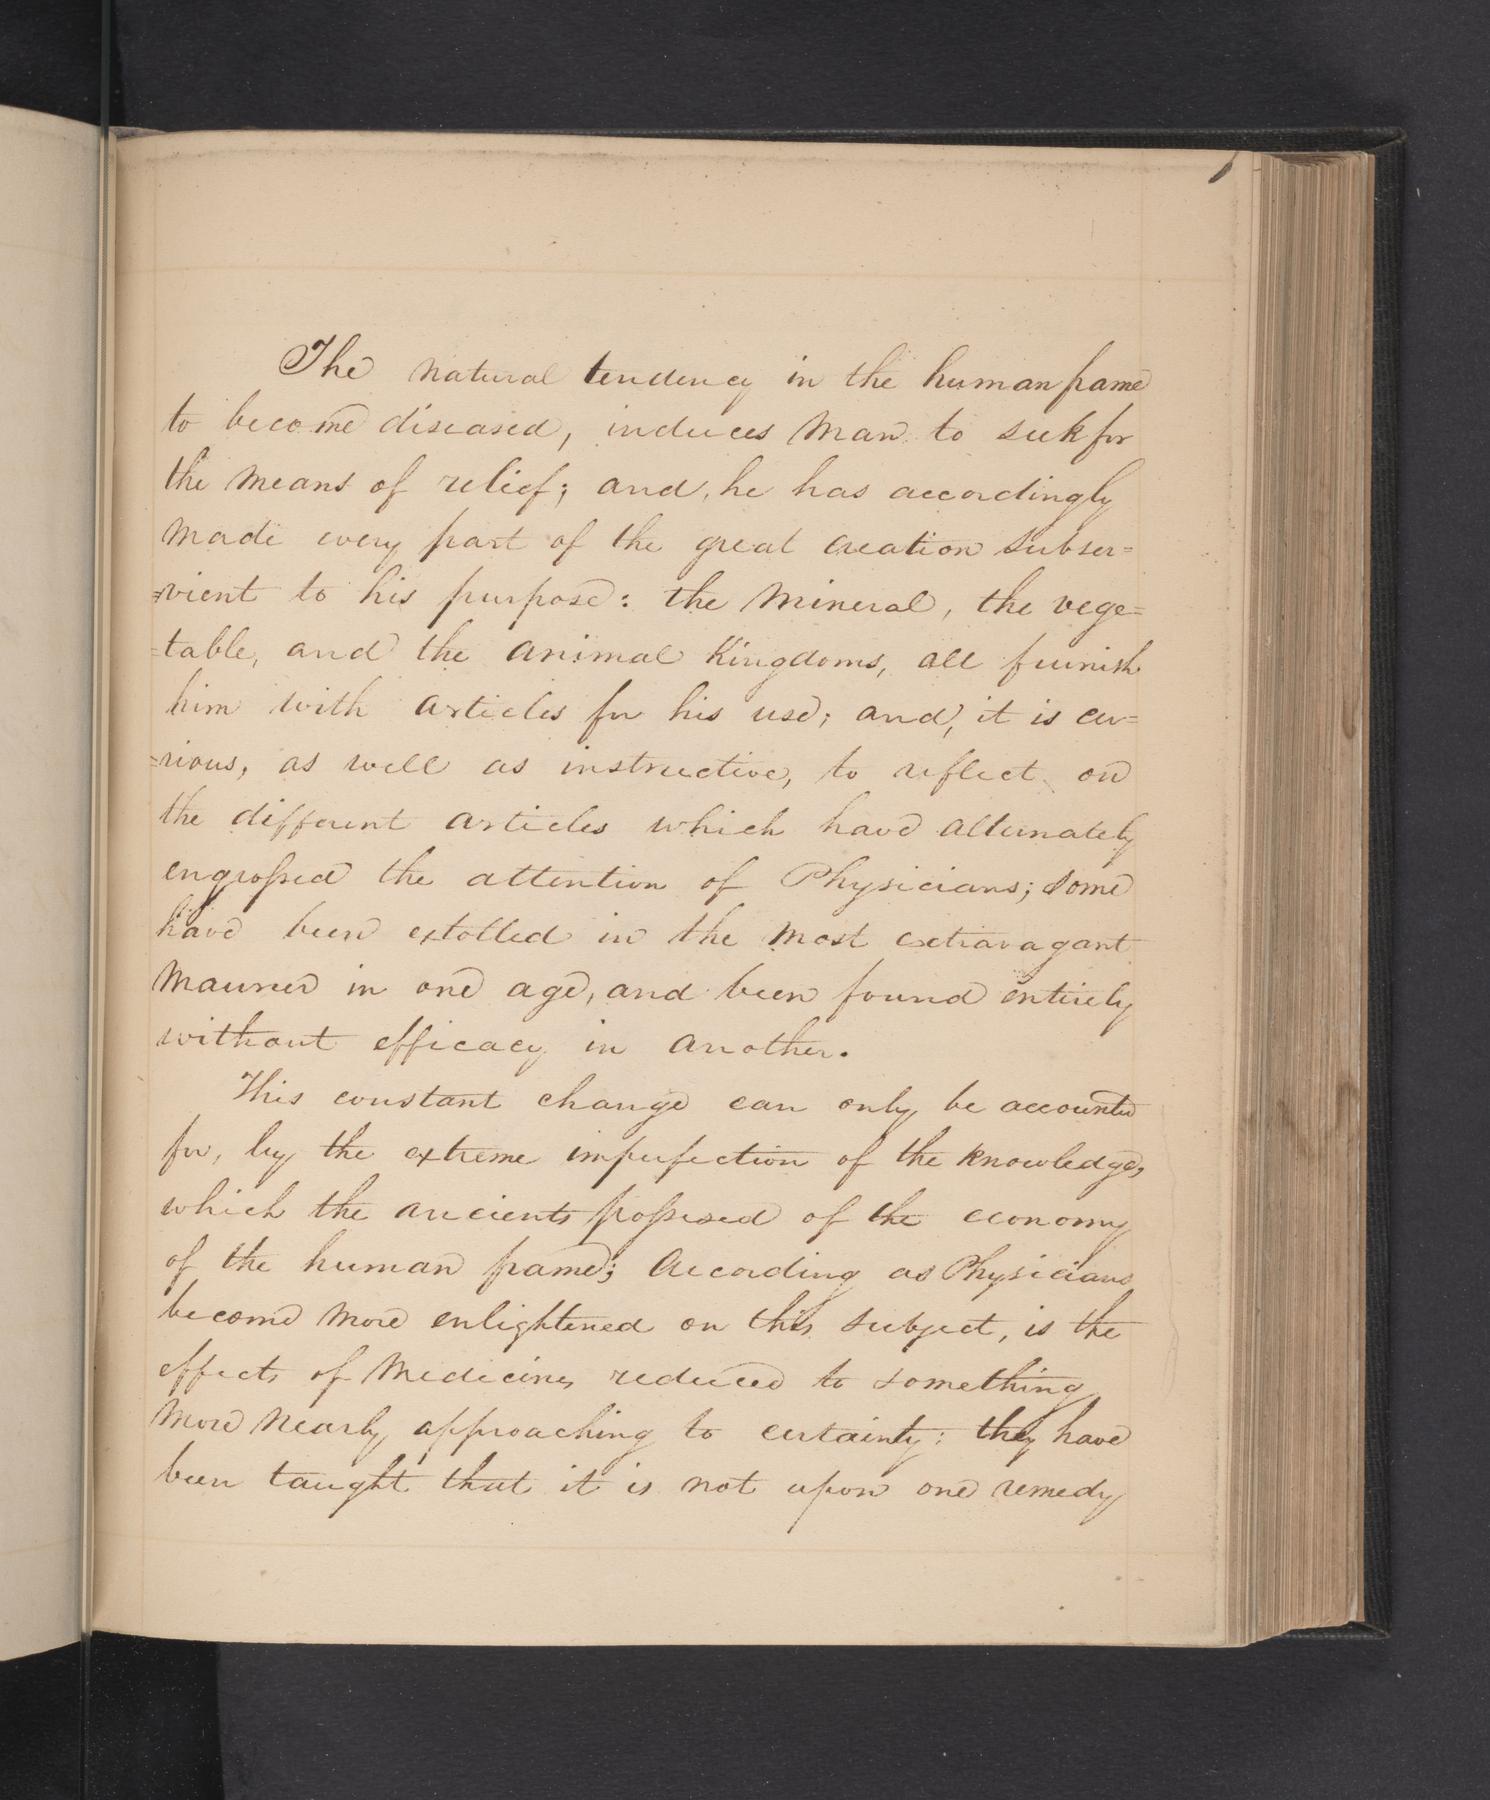 The natural tendency in the human frame
to become diseased, induces Man to seek for
the means of relief; and, he has accordingly
made every part of the great creation subser=
=vient to his purpose: the Mineral, the vege=
=table, and the animal Kingdoms, all furnish
him with articles for his use; and, it is cu=
=rious, as well as instructive, to reflect on
the different articles which have alternately
engrossed the attention of Physicians; some
have been extolled in the most extravagant
Manner in one age, and been found entirely
without efficacy in another.
This constant change can only be accounted
for, by the extreme imperfection of the knowledge,
which the ancients possessed of the economy
of the human frame; According as Physicians
become more enlightened on this subject, is the
effects of Medicines reduced to something
More nearly approaching to certainty: they have
been taught that it is not upon one remedy